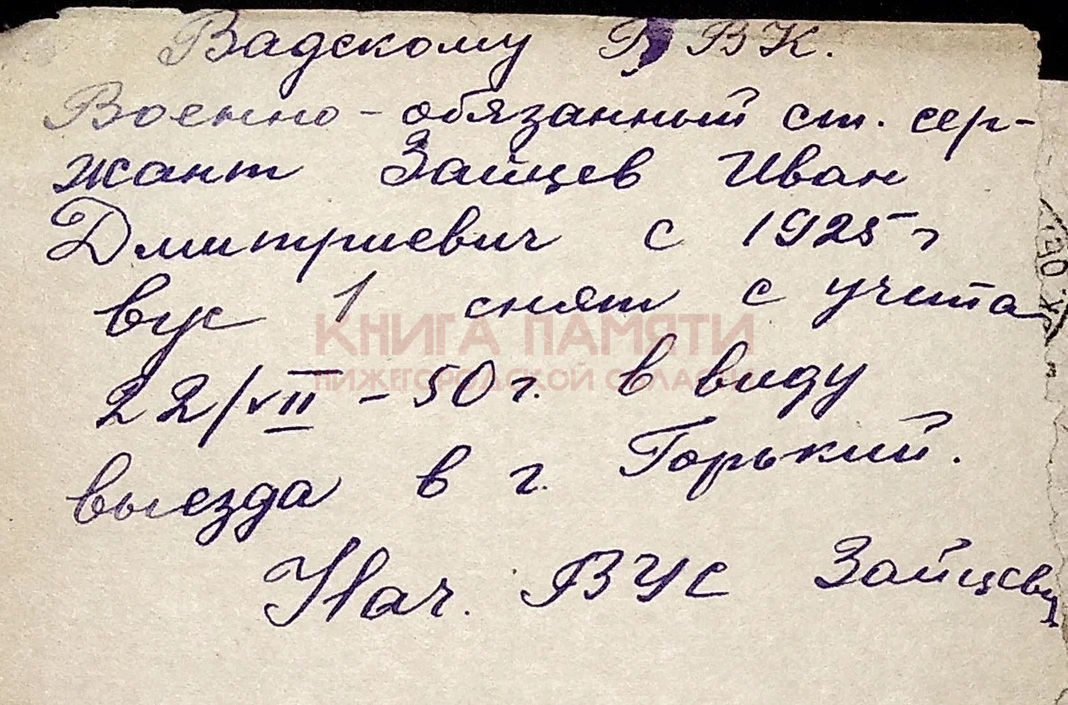 Вадскому Р ВК.
Военно-обязанный ст. сер-
жант Зайцев Иван
Дмитриевич с 1925 г
вус 1 снят с учета
КНИГА ПАМЯТИ
НИЖЕГОРОДСКОЙ ОБЛАСТИ
22/VII-50 г. в виду
выезда в г. Горький.
Нач. ВУС Зайцев